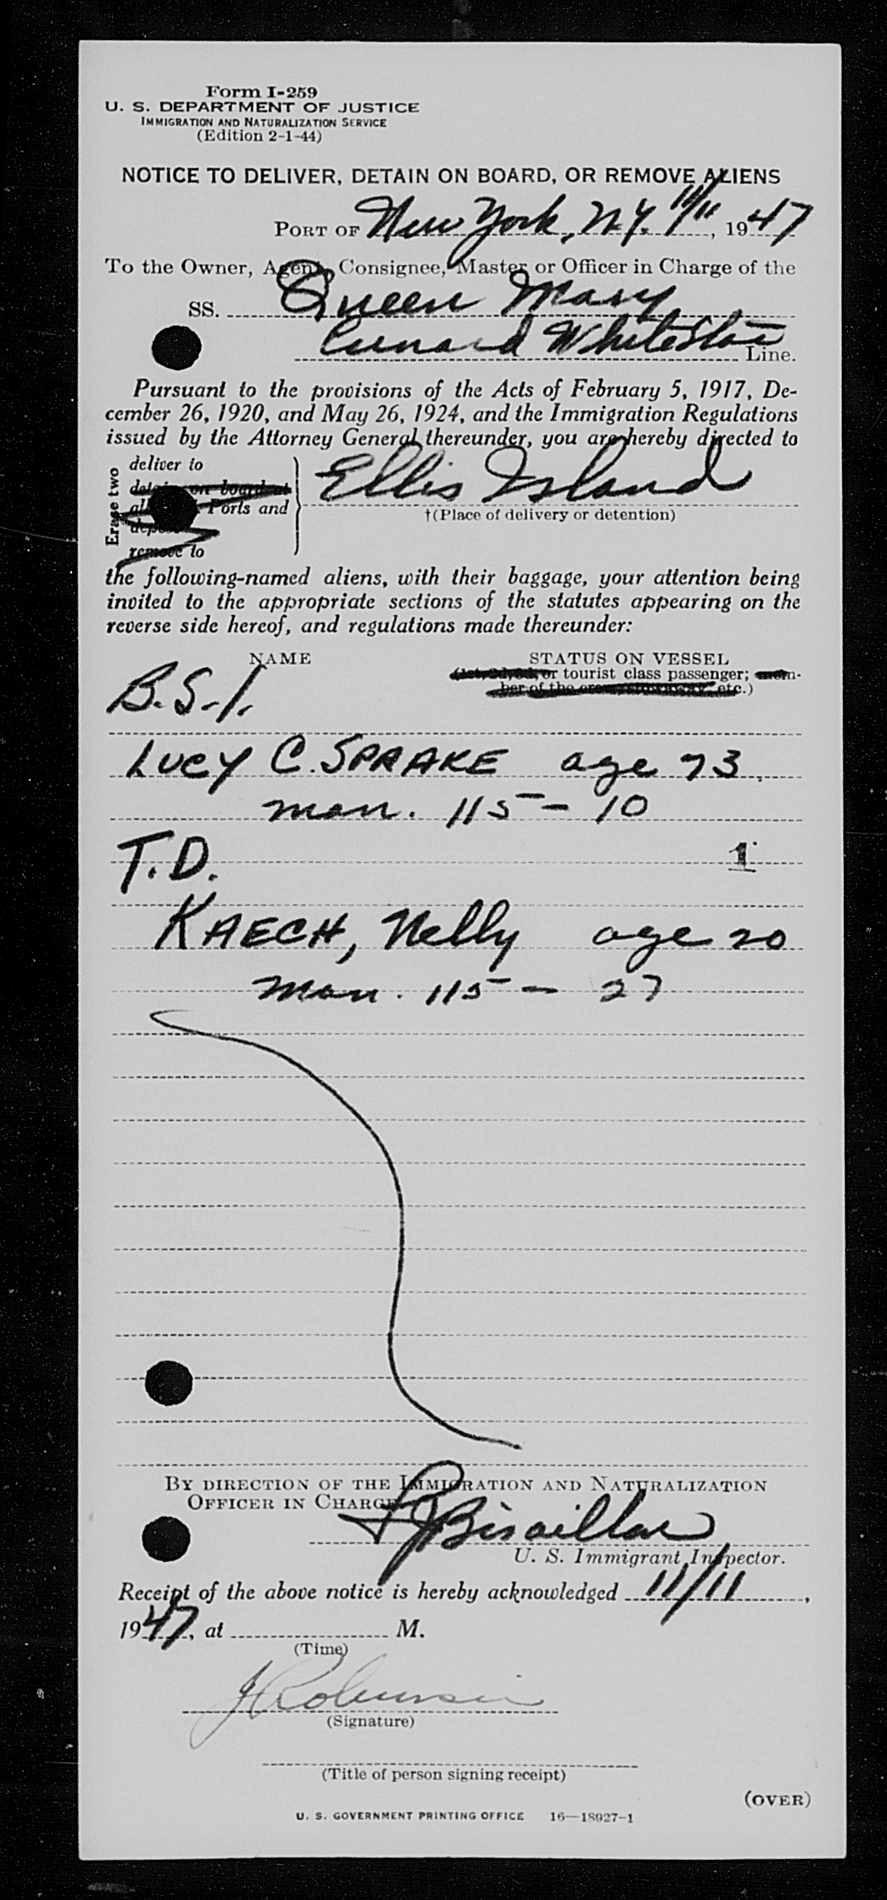 Form I-259
U. S. DEPARTMENT OF JUSTICE
IMMIGRATION AND NATURALIZATION SERVICE
(Edition 2-1-44)
NOTICE TO DELIVER, DETAIN ON BOARD, OR REMOVE ALIENS
PORT OF New York, N.Y. 11/11, 1947
To the Owner, Agent, Consignee, Master or Officer in Charge of the
SS. Queen Mary
Cunard White Star Line.
Pursuant to the provisions of the Acts of February 5, 1917, De-
cember 26, 1920, and May 26, 1924, and the Immigration Regulations
issued by the Attorney General thereunder, you are hereby directed to
Erase two
deliver to
detain on board at
Ports and
remove to
Ellis Island
†(Place of delivery or detention)
the following-named aliens, with their baggage, your attention being
invited to the appropriate sections of the statutes appearing on the
reverse side hereof, and regulations made thereunder:
NAME STATUS ON VESSEL
or tourist class passenger; mem-
ber of the crew, stowaway, etc.)
B.S.I.
LUCY C. SPRAAKE age 73
man. 115 - 10
T.D. 1
KAECH, Nelly age 20
man. 115 - 27
BY DIRECTION OF THE IMMIGRATION AND NATURALIZATION
OFFICER IN CHARGE
U. S. Immigrant Inspector.
Receipt of the above notice is hereby acknowledged 11/11,
1947, at M.
(Time)
J Robinson
(Signature)
(Title of person signing receipt)
(OVER)
U. S. GOVERNMENT PRINTING OFFICE 16—18927-1